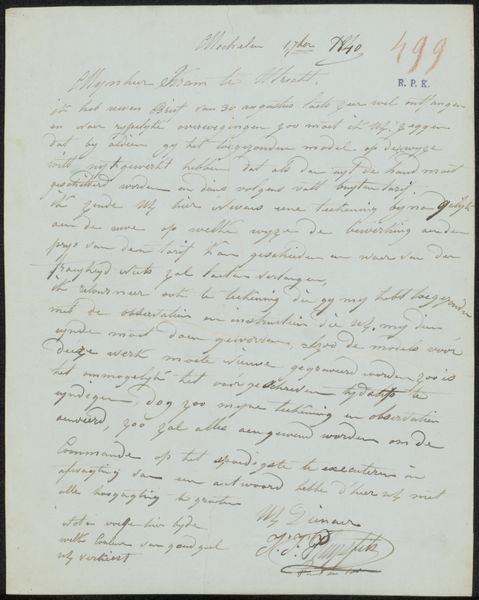 Mechelen 17ber 1840
499
R. P. K.
Mynheer Bram te Utrecht
ik heb uwen Brief van 30 augustus laets zeer wel ontfangen
en naer rypelyke overwegingen zoo moet ik UE zeggen
dat by aldien gy het toegezonden model op die wyze
wilt uytgewerkt hebben dat als dan uyt de hand moet
geschildert worden en diens volgens valt buyten tarif
ik zende UE hier nevens eene teekening byna gelyk
aen de uwe op welke wyze de bewerking aen den
prys van den tarif kan geschieden en waer van de
fraeyheyd niets zal laeten verlangen,
ik retourneer ook de teekening die gy my hebt toegezonden
met de observatien en instructien die UE my dien
ynde moet doen geworden, zoo de models vóór
deeze werk moete nieuwe gegraveerd worden zoo is
het onmogelyk het voorgeschreven tydstip te
eyndigen, dog zoo myne teekening en observatien
aenveerd, zoo zal alles aengewend worden om de
Commande op het spoedigste te executeren in
afwagting van een antwoord hebbe d'eer UE met
alle hoogagting te groeten
UE Dienaer
welke Couleur van goud geel
UE verkiest